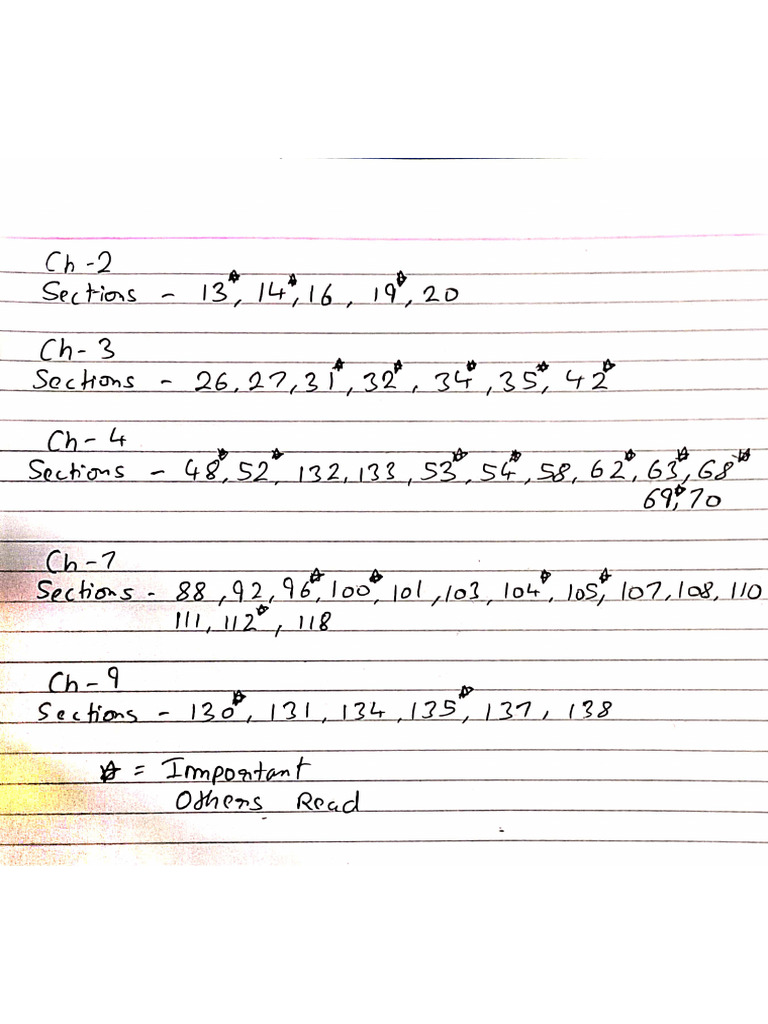 Ch-2
Sections - 13☆, 14☆, 16, 19☆, 20
Ch-3
Sections - 26, 27, 31☆, 32☆, 34☆, 35☆, 42☆
Ch-4
Sections - 48☆, 52☆, 132, 133, 53☆, 54☆, 58, 62☆, 63☆, 68☆
69☆, 70
Ch-7
Sections - 88, 92, 96☆, 100☆, 101, 103, 104☆, 105☆, 107, 108, 110
111, 112☆, 118
Ch-9
Sections - 130☆, 131, 134, 135☆, 137, 138
☆ = Important
Others Read